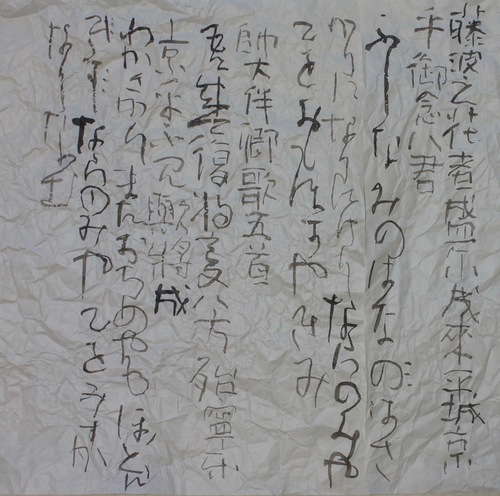 藤波之花者盛尓成來平城京
乎御念八君
ふしなみのはなのはさ
かりになりにけりならのみや
こをおもほすやきみ
帥大伴卿歌五首
吾盛復将変八方殆寧樂
京乎不見歟将成
わかさかりまたおちめやもほと
ならのみやこをみすか
なりなむ